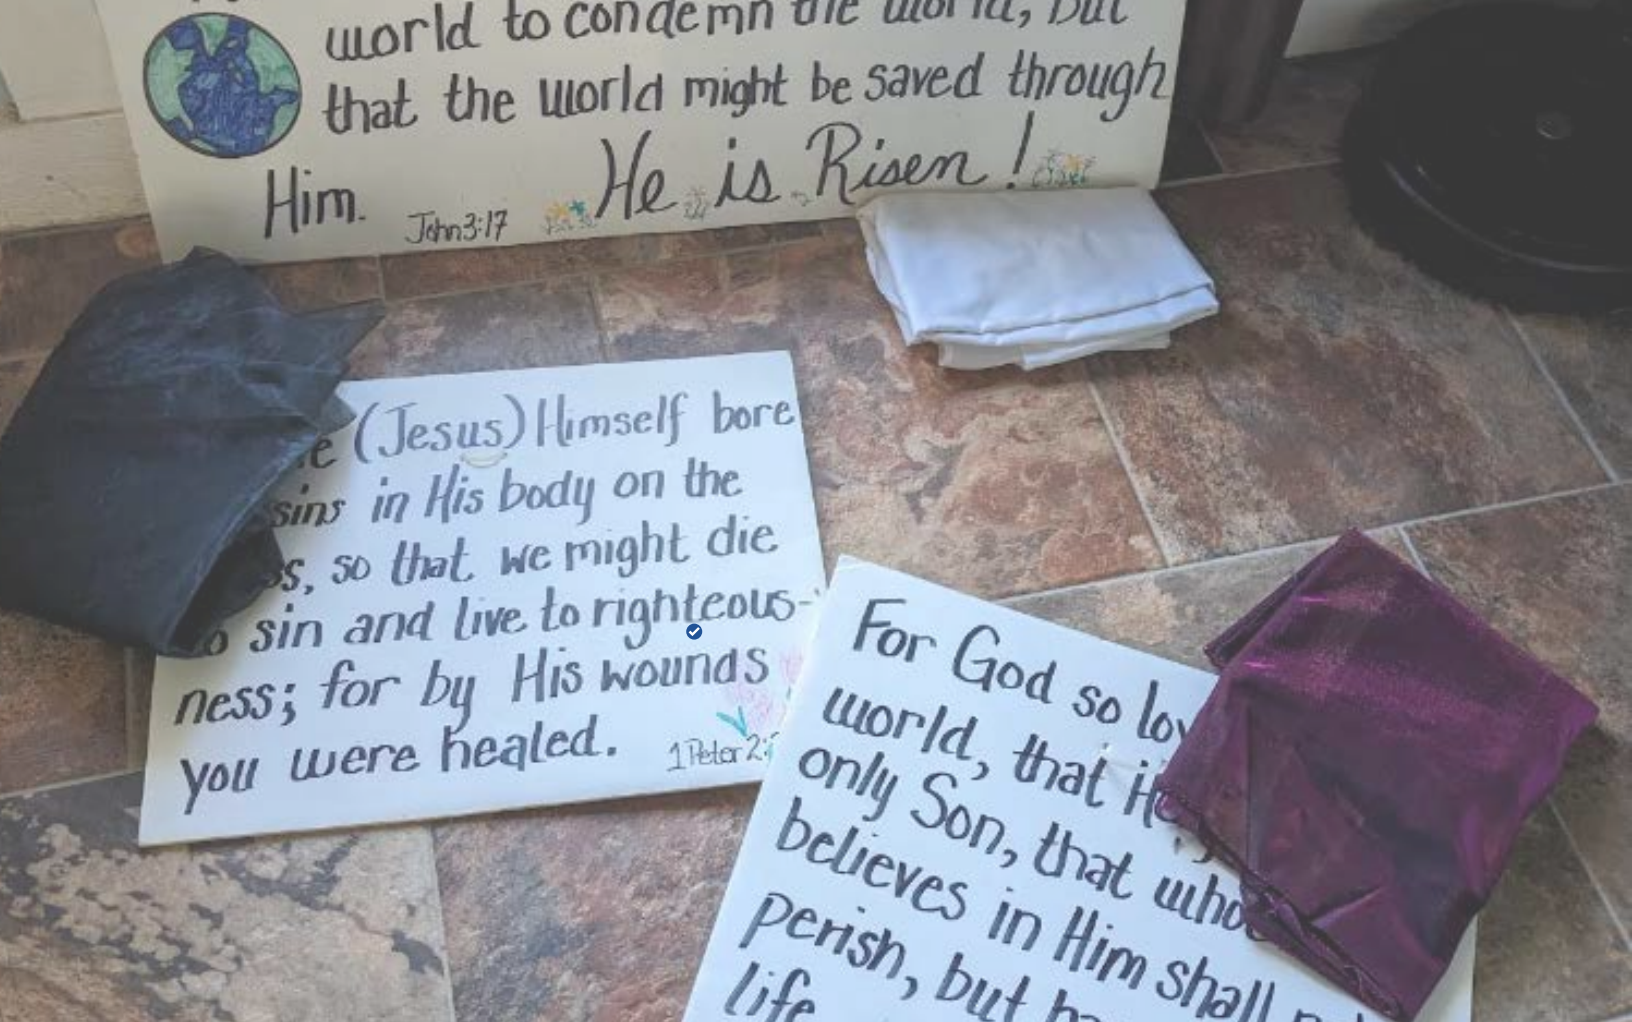 world to condemn the world, but
that the world might be saved through
Him. John 3:17 He is Risen!
(Jesus) Himself bore
sins in His body on the
so that we might die
sin and live to righteous-
ness; for by His wounds
you were healed. 1 Peter 2:
For God so
world, that
only Son, that
believes in Him shall
perish, but
life